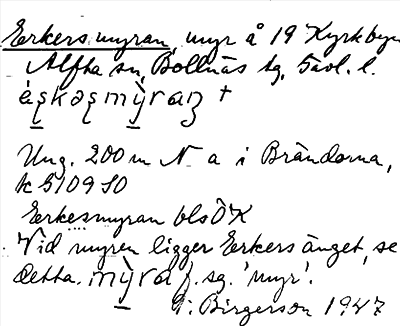 Eerkersmyran, myr å 19 Kyrkbyn
Alfta sn, Bollnäs tg, Gävl. l.
Ung. 200 m N a i Brändorna,
k 5109 SO
Eerkesmyran bls ÖK
Vid myren ligger Eerkersänget, se
detta. mỳra f. sg. 'myr'.
G. Birgerson 1927